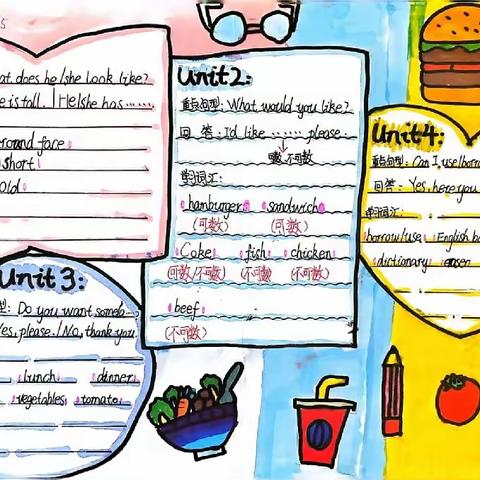 5
at does he/she look like?
e is tall. | He/she has ······
round face
short
old
Unit 2:
重点句型: What would you like?
回 答: I'd like ······ please.
嗯,不可数
重点词汇:
hamburger sandwich
(可数) (可数)
Coke fish chicken
(可数/不可数) (不可数) (不可数)
beef
(不可数)
Unit 4:
重点句型: Can I use/borro
回答: Yes, here you
重点词汇:
borrow/use English bo
dictionary eraser
Unit 3:
型: Do you want some
Yes, please. / No, thank you.
lunch dinner
vegetables tomato